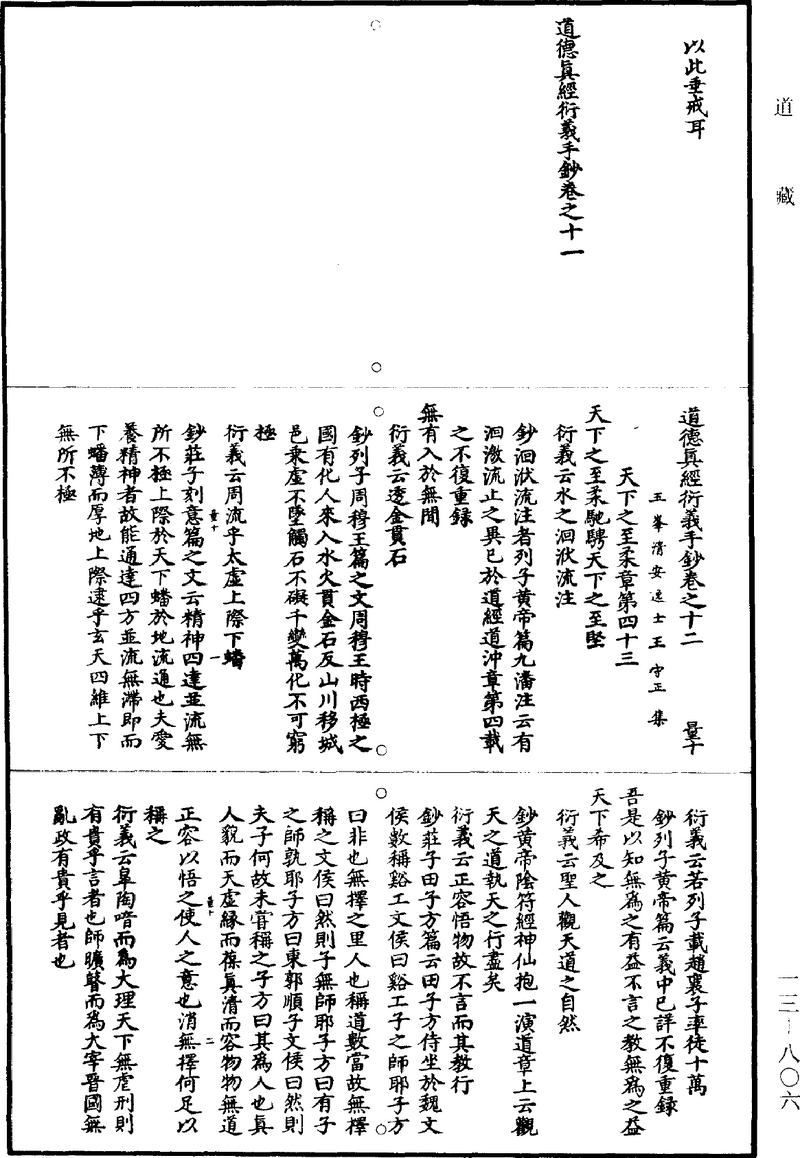 道藏
以此垂戒耳
道德眞經衍義手鈔卷之十一
道德眞經衍義手鈔卷之十二 量十
玉峯清安逸士王守正集
天下之至柔章第四十三
天下之至柔馳騁天下之至堅
衍義云水之洄洑流注
鈔洄洑流注者列子黄帝篇九潘注云有
洄激流止之異已於道經道沖章第四載
之不復重録
無有入於無間
衍義云透金貫石
鈔列子周穆王篇之文周穆王時西極之
國有化人來入水火貫金石反山川移城
邑乗虚不墜觸石不礙千變萬化不可窮
極
衍義云周流乎太虚上際下蟠
鈔莊子刻意篇之文云精神四達並流無
所不極上際於天下蟠於地流通也夫愛
養精神者故能通達四方並流無滯即而
下蟠薄而厚地上際逮乎玄天四維上下
無所不極
量十 一
衍義云若列子載趙襄子率徒十萬
鈔列子黄帝篇云義中已詳不復重録
吾是以知無爲之有益不言之教無爲之益
天下希及之
衍義云聖人觀天道之自然
鈔黄帝陰符經神仙抱一演道章上云觀
天之道執天之行盡矣
衍義云正容悟物故不言而其教行
鈔莊子田子方篇云田子方侍坐於魏文
侯數稱谿工文侯曰谿工子之師耶子方
曰非也無擇之里人也稱道數當故無擇
稱之文侯曰然則子無師耶子方曰有子
之師孰耶子方曰東郭順子文侯曰然則
夫子何故未甞稱之子方曰其爲人也眞
人貌而天虚縁而葆眞清而容物物無道
正容以悟之使人之意也消無擇何足以
稱之
衍義云皐陶喑而爲大理天下無虐刑則
有貴乎言者也師曠瞽而爲大宰晉國無
亂政有貴乎見者也
量十 二
一三-八〇六